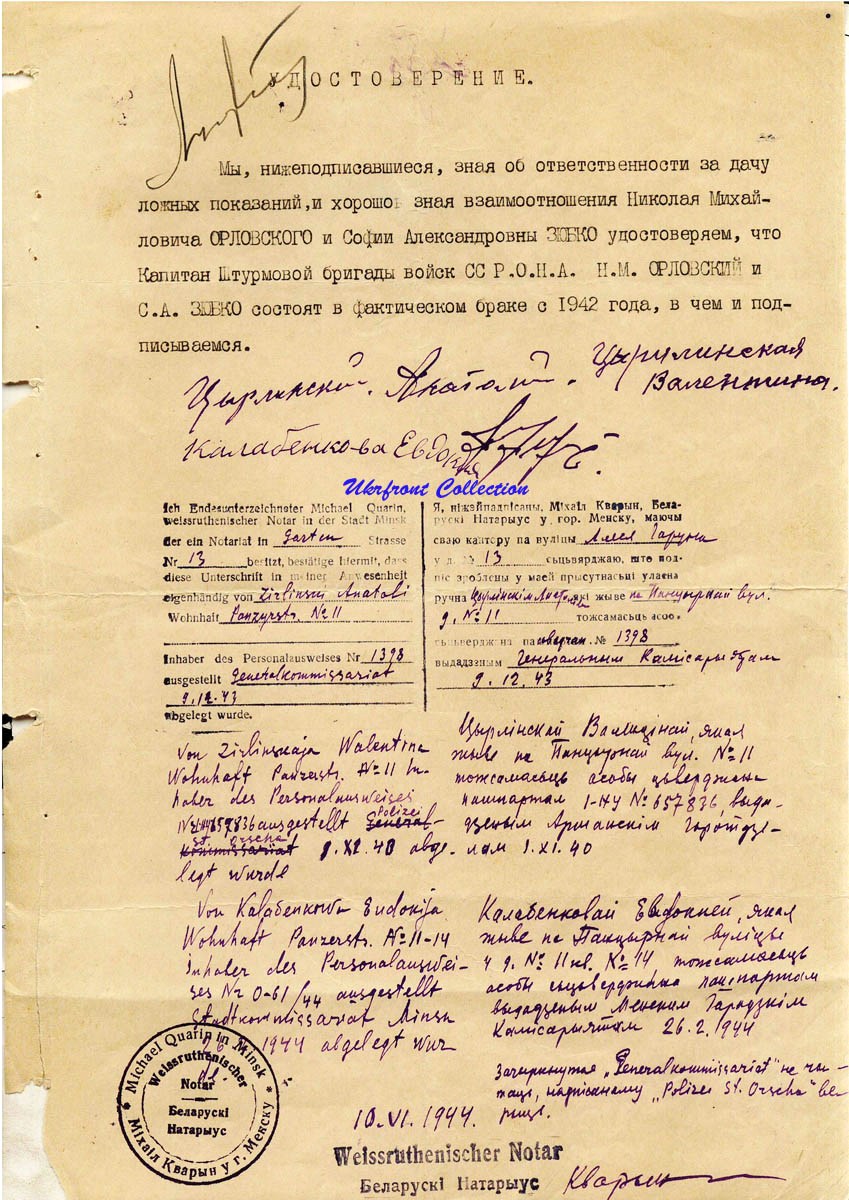 УДОСТОВЕРЕНИЕ.
Мы, нижеподписавшиеся, зная об ответственности за дачу
ложных показаний,и хорошо зная взаимоотношения Николая Михай-
ловича ОРЛОВСКОГО и Софии Александровны ЗЮБКО удостоверяем, что
Капитан Штурмовой бригады войск СС Р.О.Н.А. Н.М. ОРЛОВСКИЙ и
С.А. ЗЮБКО состоят в фактическом браке с 1942 года, в чем и под-
писываемся.
Цырлинский. Анатолий. Цырлинская
Валентина.
Калабенкова Евдокия
Ukrfront Collection
Ich Endesunterzeichneter Michael Quarin,
weissruthenischer Notar in der Stadt Minsk
der ein Notariat in Garten Strasse
Nr 13 besitzt, bestätige hiermit, dass
diese Unterschrift in meiner Anwesenheit
eigenhändig von Zirlinski Anatoli
Wohnhaft Panzerstr. № 11
Inhaber des Personalausweises Nr 1398
ausgestellt Generalkommissariat
9.12.43
abgelegt wurde.
Я, ніжэйпадпісаны, Міхаіл Кварын, Бела-
рускі Натарыус у гор. Менску, маючы
сваю кантору па вуліцы Аллея Гаруна
у д. № 13 сьцьвярджаю, што под-
піс зроблены у маей прысутнасьці уласна
ручна Цырлінскім які жыве па Панцырнай вул.
д. № 11 тожсамасьць асобы
сьцьверджана пасведчан. № 1398
выдадзеным Генеральным Камісарыятам
9.12.43
Von Zirlinskaja Walentina
Wohnhaft Panzerstr. № 11 In-
haber des Personalausweises
657836 ausgestellt General- Polizei
kommissariat St. Orscha 1.XI.40 abge-
legt wurde
Цырлінскай Валянцінай, якая
жыве па Панцырнай вул. № 11
тожсамасьць особы цьверджана
пашпартам 1-НУ № 657836, выда-
дзеным Аршанскім
1.XI.40
Von Kalabenkowa Eudokija
Wohnhaft Panzerstr. № 11-14
Inhaber des Personalauswei-
ses Nr 0-61/44 ausgestellt
Stadtkommissariat Minsk
1944 abgelegt wur
de.
Калабенковай Евдокией, якая
жыве па Панцырнай вуліцы
у д. № 11 кв. № 14 тожсамасьць
особы сьцьверджана пашпартам
выдадзеным Менским Гарадзкім
Камісарыятам 26.2.1944
Зачеркнутая „Generalkommissariat" не чы-
таць, надпісанаму „Polizei St. Orscha" ве-
рыць.
Michael Quarin in Minsk
Weissruthenischer
Notar
Беларускі
Натарыус
Міхаіл Кварын у г. Менску
10.VI.1944.
Weissruthenischer Notar
Беларускі Натарыус Кварын